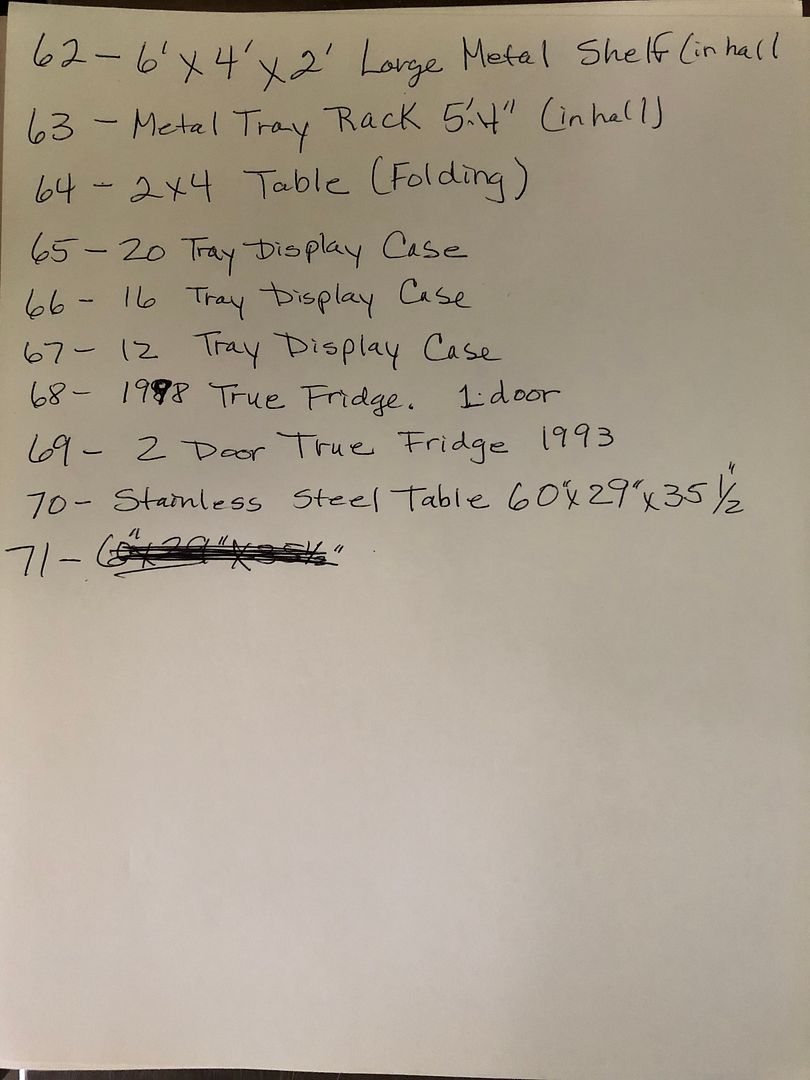 62 - 6' x 4' x 2' Large Metal Shelf (in hall
63 - Metal Tray Rack 5'4" (in hall)
64 - 2x4 Table (Folding)
65 - 20 Tray Display Case
66 - 16 Tray Display Case
67 - 12 Tray Display Case
68 - 1998 True Fridge. 1-door
69 - 2 Door True Fridge 1993
70 - Stainless Steel Table 60" x 29" x 35 1/2"
71 - 60" x 29" x 35 1/2"